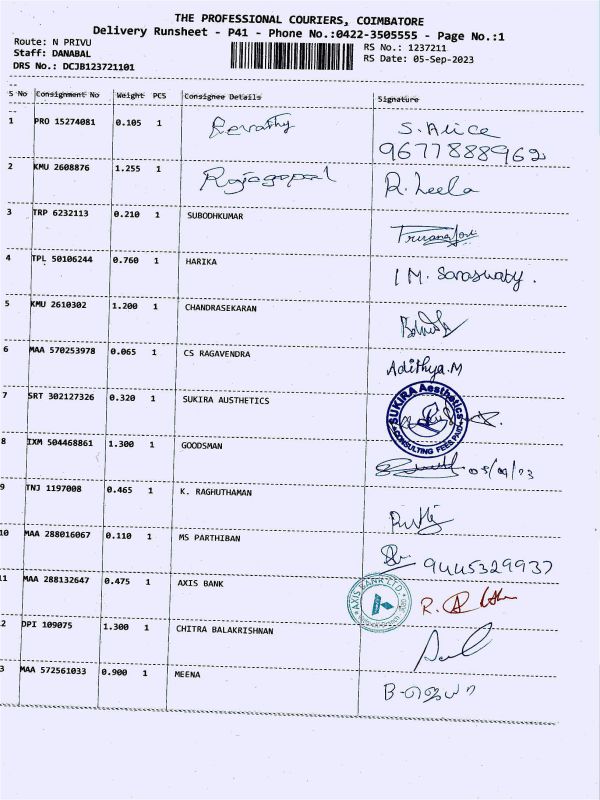 THE PROFESSIONAL COURIERS, COIMBATORE
Delivery Runsheet - P41 - Phone No.:0422-3505555 - Page No.:1
Route: N PRIVU RS No.: 1237211
Staff: DANABAL RS Date: 05-Sep-2023
DRS No.: DCJB123721101
S No Consignment No Weight PCS Consignee Details Signature
1 PRO 15274081 0.105 1 Revathy S. Alice
9677888962
2 KMU 2608876 1.255 1 Rajagopal R. Leela
3 TRP 6232113 0.210 1 SUBODHKUMAR
4 TPL 50106244 0.760 1 HARIKA M. Saraswaty.
5 KMU 2610302 1.200 1 CHANDRASEKARAN
6 MAA 570253978 0.065 1 CS RAGAVENDRA Adithya.M
7 SRT 302127326 0.320 1 SUKIRA AUSTHETICS SUKIRA Aesthetics
CONSULTING FEES PAID
8 IXM 504468861 1.300 1 GOODSMAN
9 TNJ 1197008 0.465 1 K. RAGHUTHAMAN
10 MAA 288016067 0.110 1 MS PARTHIBAN 9445329937
11 MAA 288132647 0.475 1 AXIS BANK AXIS BANK LTD.
2 DPI 109075 1.300 1 CHITRA BALAKRISHNAN
3 MAA 572561033 0.900 1 MEENA